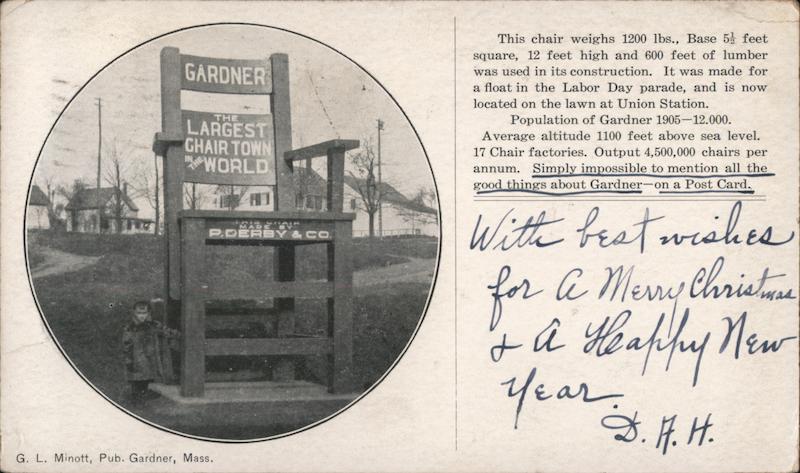 GARDNER
THE
LARGEST
CHAIR TOWN
IN THE
WORLD
THIS CHAIR
MADE BY
P. DERBY & CO.
G. L. Minott, Pub. Gardner, Mass.
This chair weighs 1200 lbs., Base 5½ feet
square, 12 feet high and 600 feet of lumber
was used in its construction. It was made for
a float in the Labor Day parade, and is now
located on the lawn at Union Station.
Population of Gardner 1905—12.000.
Average altitude 1100 feet above sea level.
17 Chair factories. Output 4,500,000 chairs per
annum. Simply impossible to mention all the
good things about Gardner—on a Post Card.
With best wishes
for A Merry Christmas
& A Happy New
Year.
D. A. H.